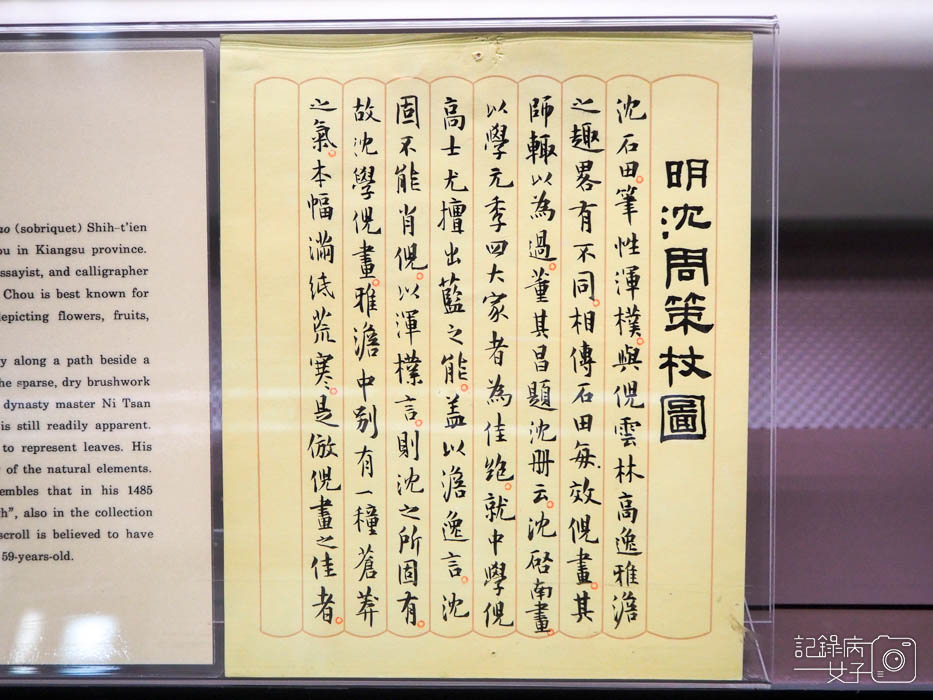 明沈周策杖圖
沈石田。筆性渾樸。與倪雲林高逸雅澹
之趣畧有不同。相傳石田每效倪畫。其
師輒以為過。董其昌題沈册云。沈啟南畫。
以學元季四大家者為佳絕。就中學倪
高士尤擅出藍之能。盖以澹逸言。沈
固不能肖倪。以渾樸言。則沈之所固有。
故沈學倪畫。雅澹中別有一種蒼莽
之氣。本幅滿紙荒寒。是倣倪畫之佳者。
(sobriquet) Shih-t'ien
in Kiangsu province.
and calligrapher
Chou is best known for
depicting flowers, fruits,
along a path beside a
sparse, dry brushwork
dynasty master Ni Tsan
is still readily apparent.
to represent leaves. His
of the natural elements.
that in his 1485
also in the collection
scroll is believed to have
59-years-old.
記錄病
女子